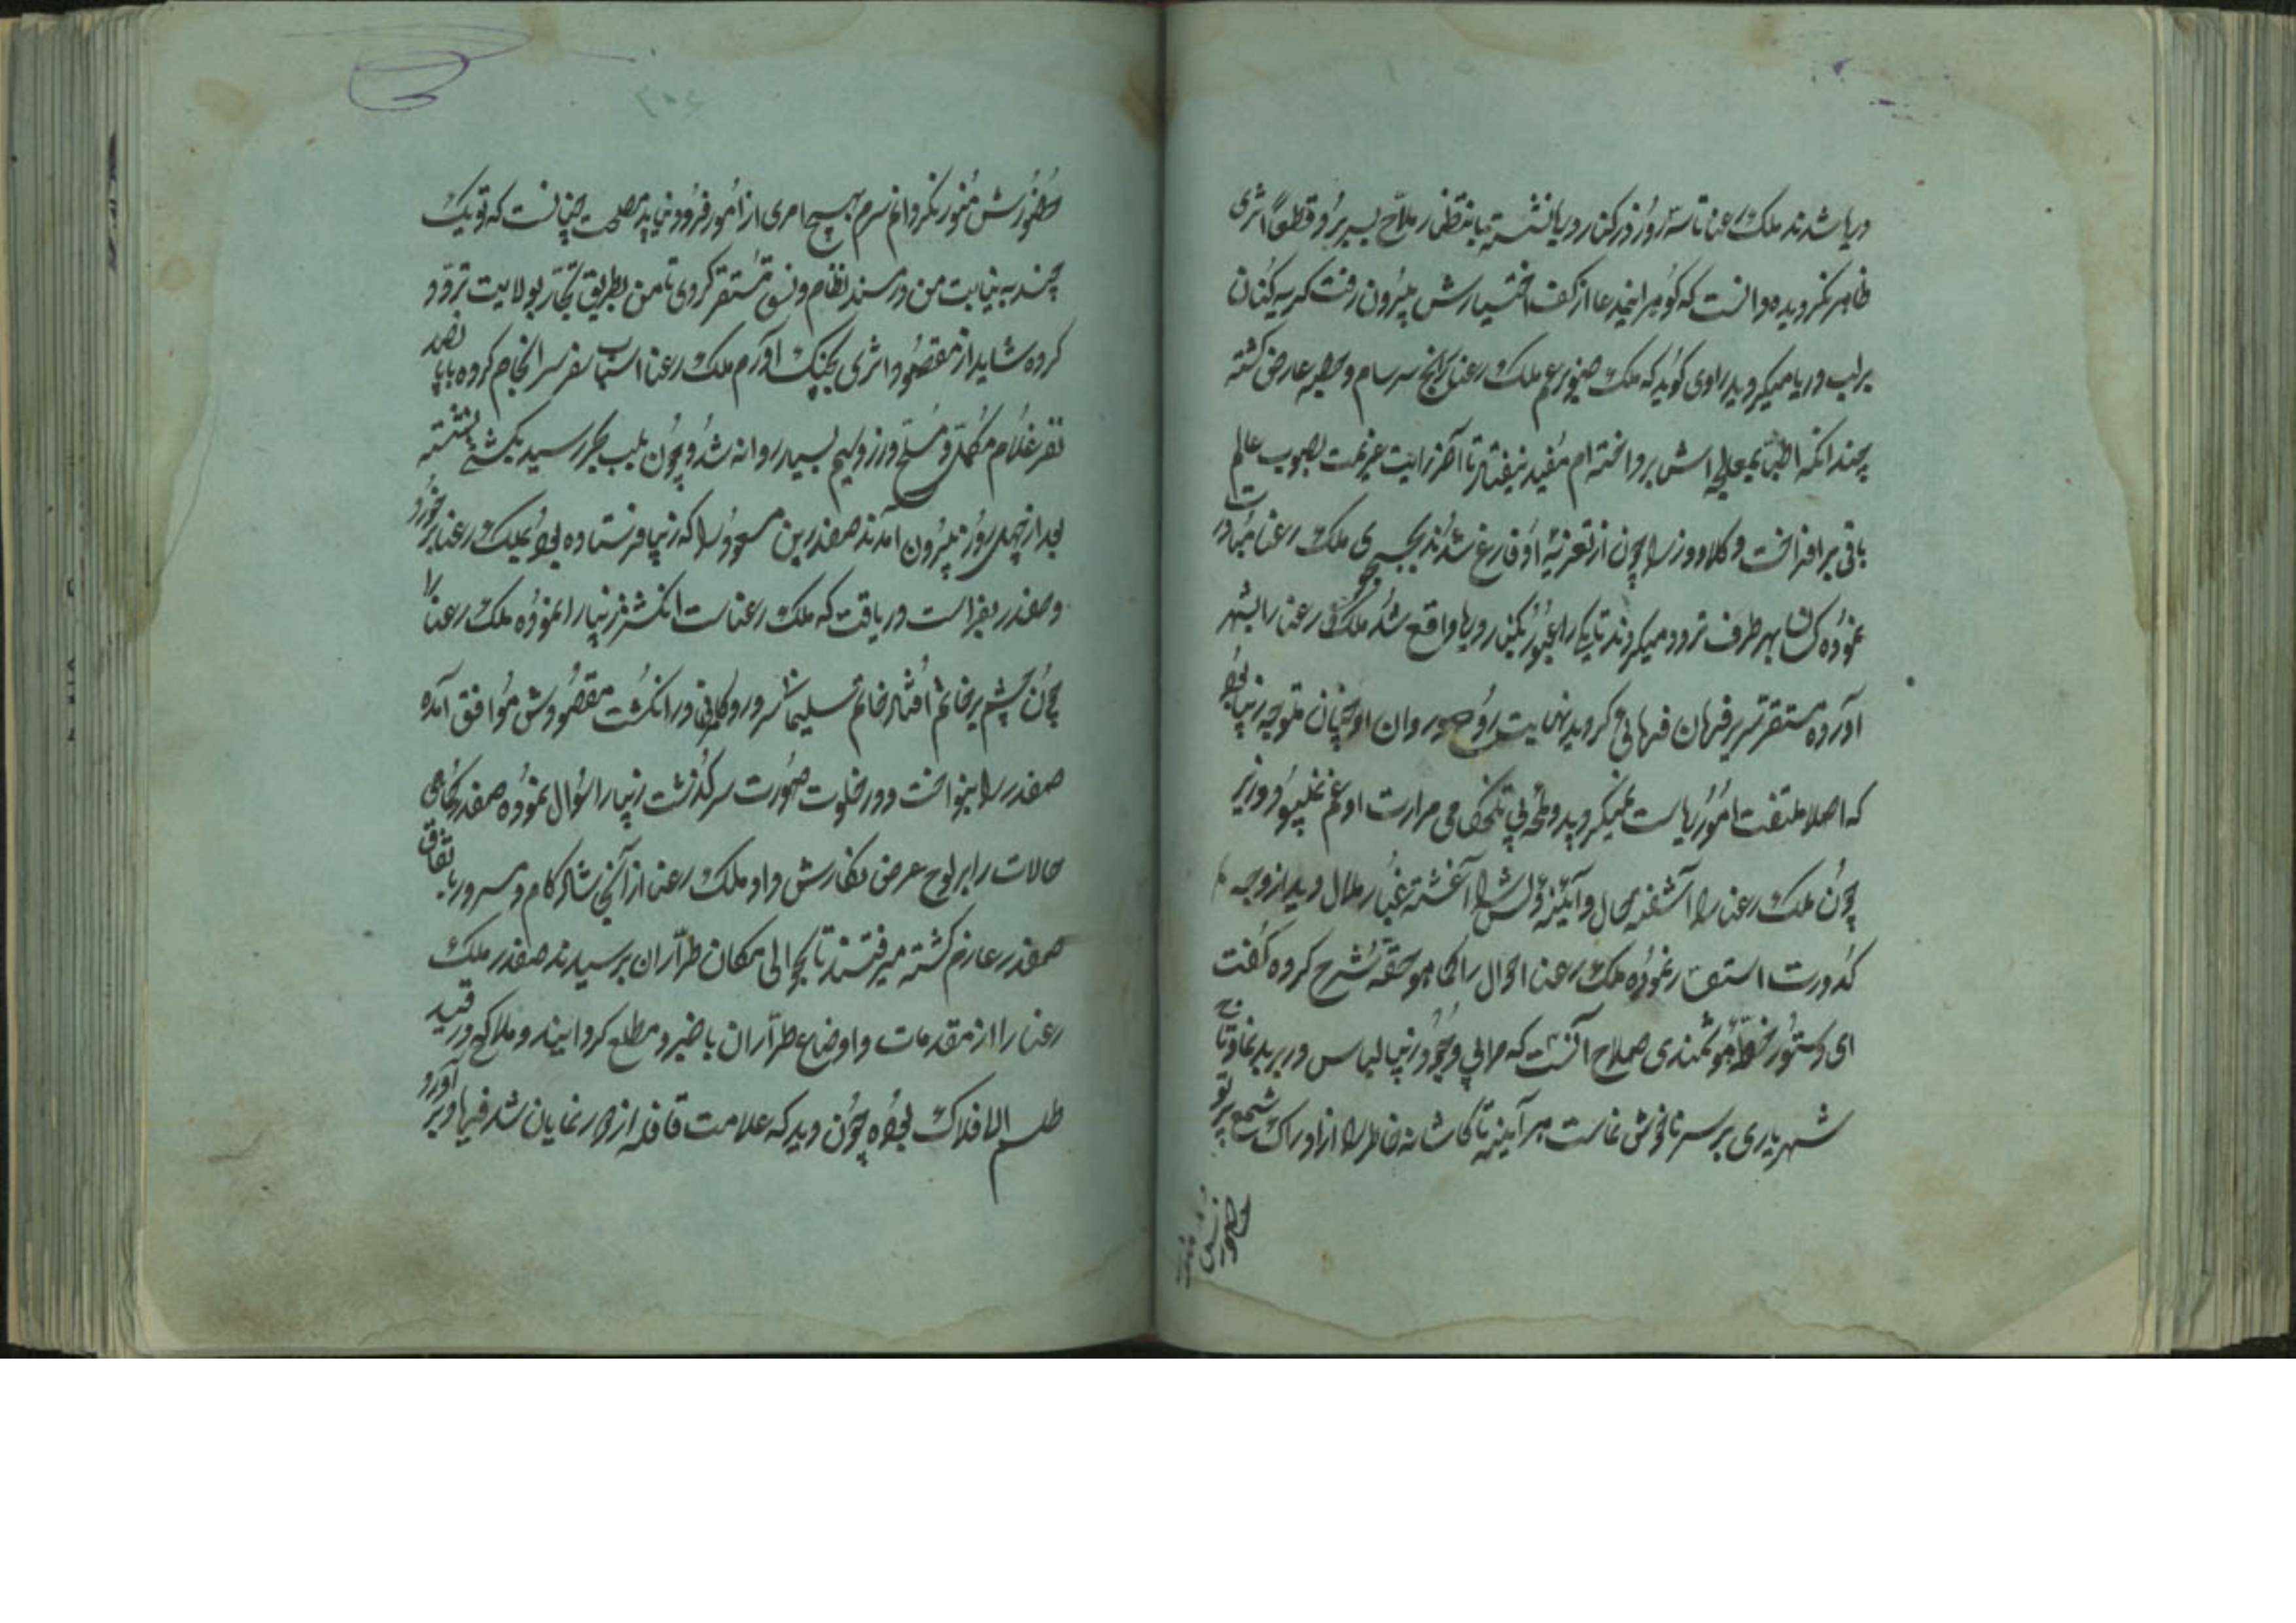 دریا شدند ملک رعنا تا سه روز در کنار دریا نشسته بانتظار ملاح بسر برد و قطعاً اثری
ظاهر نگردیده دانست که گوهر این مدعا از کف اختیارش بیرون رفت گریه کنان
بر لب دریا میگردید راوی گوید که ملک عم ملک رعنا را رنج سرسام و عارض گشته
چندانکه اطبا بمعالجه اش پرداخته ام مفید نیفتاد تا آخر رایت عزیمت بصوب عالم
باقی برافراخت وکلا و وزرا چون از تعزیه او فارغ شدند بجستجوی ملک رعنا مبادرت
نموده کسان بهر طرف تردد میکردند تا یکی را عبور بکنار دریا واقع شد ملک رعنا را بشهر
آورده مستقر سریر فرمان فرمائی گردید نهایت روح و روان او چنان متوجه زیبا بود
که اصلا ملتفت امور ریاست نمیگردید و لمحهٔ بی تلخکامی مرارت او غم نمیبود وزیر
چون ملک رعنا را آشفته حال و آئینه دلش را آغشته غبار ملال دید از وجه
کدورت استفسار نموده ملک رعنا احوال را کماهو حقه شرح کرده گفت
ای دستور خطهٔ هوشمندی صلاح آنست که مرا بی وجود زیبا لباس در بر بد نما و تاج
شهریاری بر سر ناخوش نماست هر آینه تا کاشانه خاطر را از ادراک شمع پرتو
حضورش منور
حضورش منور نگردانم سرم بهیچ امری از امور فرود نیاید مصلحت چنانست که تو یک
چند به نیابت من در مسند نظام و نسق مستقر گردی تا من بطریق تجار بولایت تردد
کرده شاید از مقصود اثری بچنگ آورم ملک رعنا اسباب سفر سرانجام کرده با پانصد
نفر غلام مکمل و مسلح و زر و سیم بسیار روانه شد و چون بلب بحر رسید بکشتی نشسته
بعد از چهل روز بیرون آمدند صفدر بن مسعود را که زیبا فرستاده بود بملک رعنا برخورد
و صفدر بفراست دریافت که ملک رعناست انگشتر زیبا را نموده ملک رعنا را
چون چشم بر خاتم افتاد خاتم سلیمانی سرور و کامرانی در انگشت مقصودش موافق آمده
صفدر را بنواخت و در خلوت صورت سرگذشت زیبا را سؤال نموده صفدر کماهی
حالات را بر لوح عرض نگارش داد و ملک رعنا از آنجا شادکام و مسرور باتفاق
صفدر عازم گشته میرفتند تا بحوالی مکان طراران برسیدند صفدر ملک
رعنا را از مقدمات و اوضاع طراران با خبر و مطلع گردانید و ملاح که در قید
طلسم الافلاک بوده چون دید که علامت قافله از دور نمایان شد فریاد بر آورد